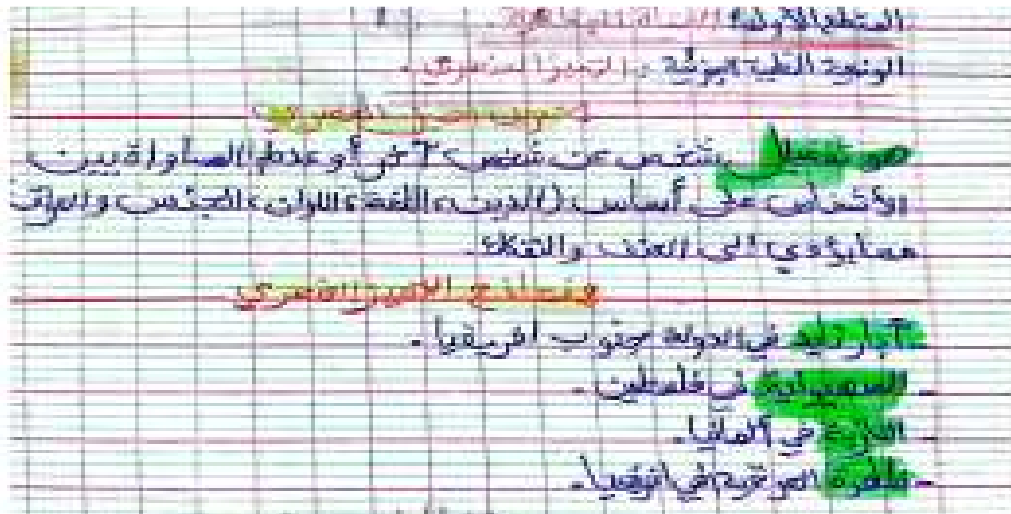 المقطع الأول:
الوضعية التعلمية الجزئية: التمييز العنصري.
تعريف التمييز العنصري
هو تفضيل شخص عن شخص آخر أو عدم المساواة بين
الأشخاص على أساس (الدين، اللغة، اللون، الجنس والعرق
مما يؤدي الى العنف والتفكك.
نماذج التمييز العنصري
- آبارتايد في الدولة جنوب افريقيا.
- الصهيونية في فلسطين.
- النازية في ألمانيا.
- ظاهرة العرقية في افريقيا.